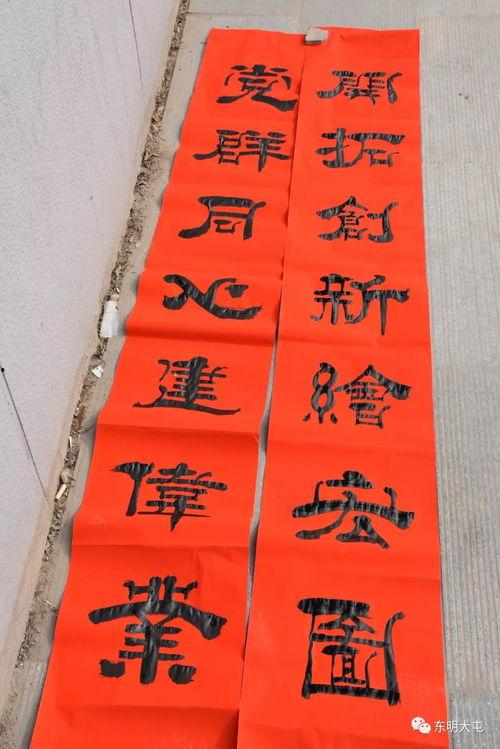 開拓創新繪宏圖
党群同心建偉業
东明大屯